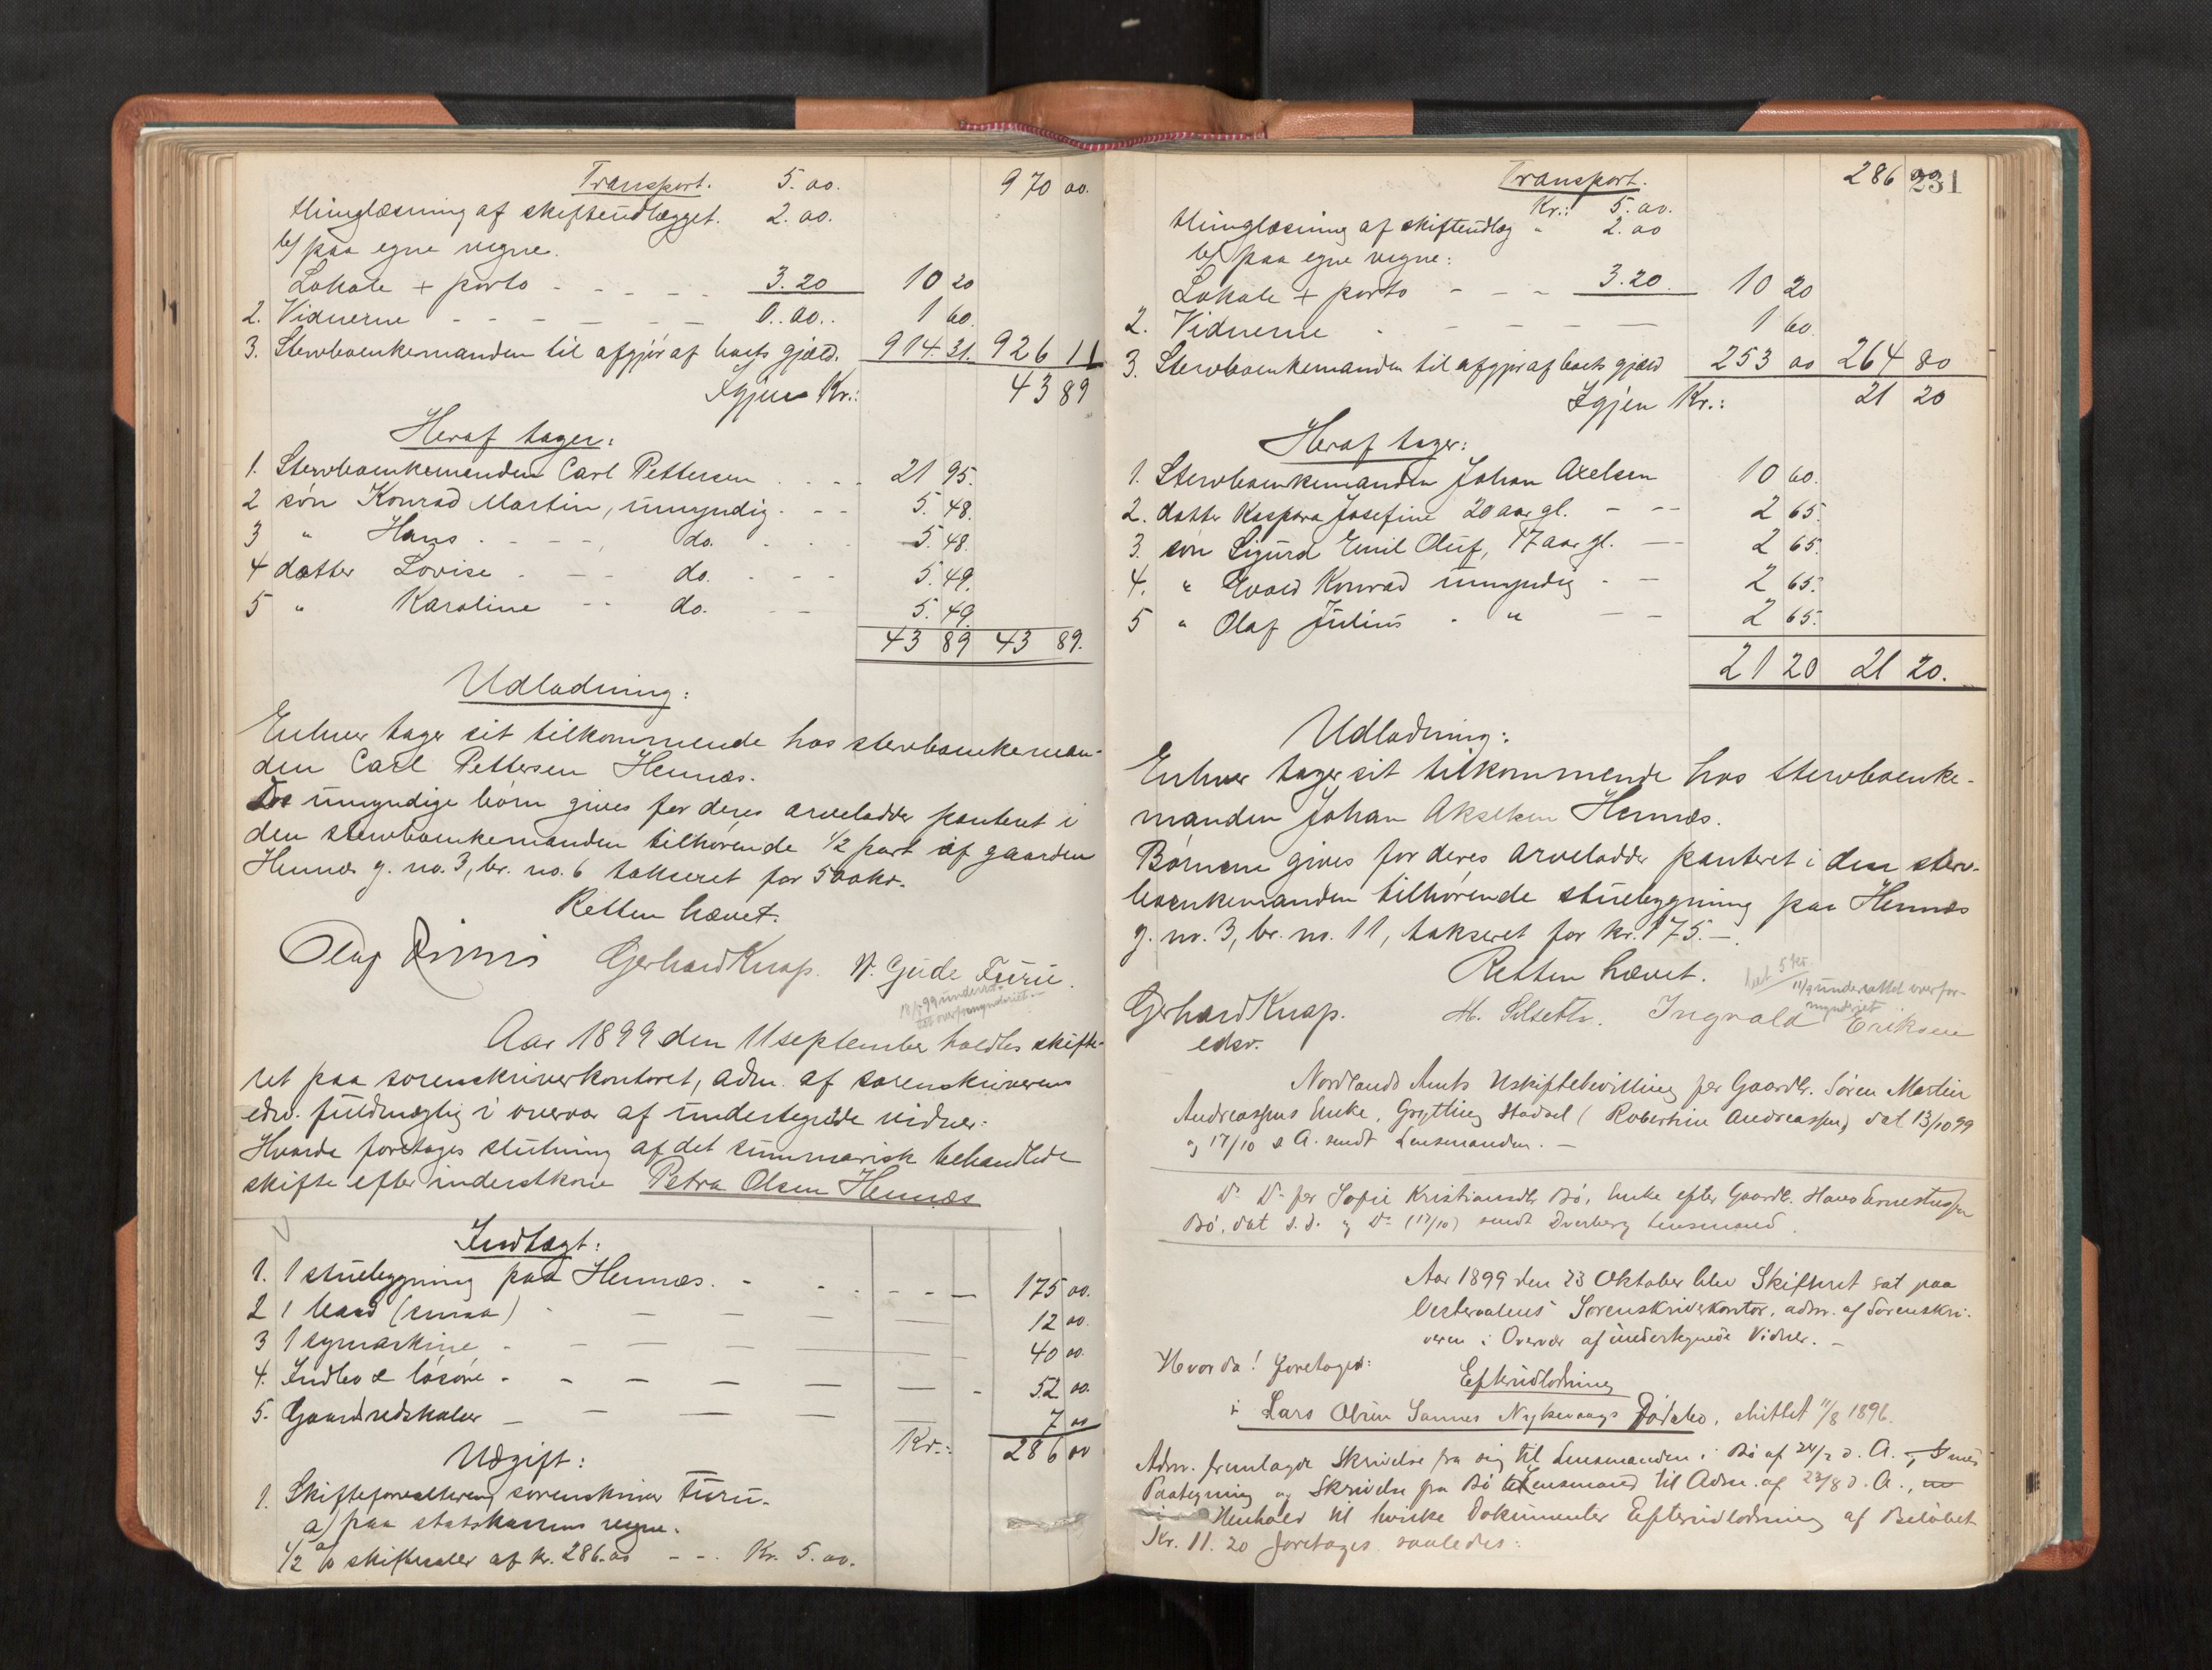 Transport. 5.00. 970 00.
thinglæsning af skifteudlægget. 2.00.
b/ paa egne vegne.
Lokale + porto - - - - - 3.20 10 20
2. Vidnerne - - - - - - 0.00. 1 60.
3. Stervboenkemanden til afgjør af boets gjæld. 914.31. 926 11
Igjen Kr.: 43 89
Heraf tager:
1. Stervboenkemanden Carl Pettersen - - - - 21 95.
2 søn Konrad Martin, umyndig - - - 5. 48.
3 " Hans - - - - do. - - - 5. 48.
4 datter Lovise - - - do. - - - 5. 49.
5 " Karoline - - do. - - 5. 49.
43 89 43 89.
Udlodning:
Enhver tager sit tilkommende hos stervboenkeman-
den Carl Pettersen Hennæs.
De umyndige børn gives for deres arvelodder panteret i
den stervboenkemanden tilhørende 1/2 part af gaarden
Hennæs g. no. 3, br. no. 6 takseret for 500kr.
Retten hævet.
Gerhard Knap. N. Gude Furu.
Aar 1899 den 11 september holdtes skifte-
ret paa sorenskriverkontoret, adm. af sorenskriverens
edsv. fuldmægtig i overvær af undertegnede vidner:
Hvorda foretoges slutning af det summarisk behandlede
skifte efter inderstkone Petra Olsen Hennæs
Indtægt:
1. 1 stuebygning paa Hennæs. - - - - - 175 00.
2 1 baad ( ) - - - - 12 00.
3 1 symaskine - - - - 40 00.
4. Indbo & løsøre - - - - - 52 00.
5. Gaardsredskaber - - - - 7 00
Kr.: 286 00
Udgift:
1. Skifteforvaltereren sorenskriver Furu.
a/ paa statskassens vegne.
1/2 % skiftesaler af kr. 286.00 - - - Kr. 5.00.
Transport. 286 00 231
Kr.: 5.00.
thinglæsning af skifteudlæg " 2.00
b/ paa egne vegne:
Lokale + porto - - - 3.20. 10 20
2. Vidnerne - - - - - 1 60.
3. Stervboenkemanden til afgjør af boets gjæld 253 00 264 80
Igjen Kr.: 21 20
Heraf tager:
1. Stervboenkemanden Johan Axelsen 10 60.
2. datter Kaspara Josefine 20 aar gl. - - - 2 65.
3. søn Sigurd Emil Oluf, 17 aar gl. - - 2 65.
4. " Evald Konrad umyndig - - 2 65.
5 " Olaf Julius - " - - 2 65.
21 20 21 20.
Udlodning:
Enhver tager sit tilkommende hos stervboenke-
manden Johan Akselsen Hennæs.
Børnene gives for deres arvelodder panteret i den sterv-
boenkemanden tilhørende stuebygning paa Hennæs
g. no. 3, br. no. 11, takseret for kr. 175.-.
Retten hævet.
11/9 underrettet overfor-
mynderiet
Gerhard Knap. M. Ingvald Eriksen
edsv.
Nordlands Amts Uskiftebevilling for Gaardbr. Søren Martin
Andreassens Enke, Grytting Hadsel ( Robertine Andreassen) dat 13/10 99
og 17/10 s A. sendt Lensmanden. -
Do Do for Sofie Kristiansdtr Bø, Enke efter Gaardbr. Hans Ernestussen
Bø, dat s.d. og Do (17/10) sendt Dverberg Lensmand.
Aar 1899 den 23 Oktober blev Skifteret sat paa
Vesteraalens Sorenskriverkontor, adm. af Sorenskri-
veren i Overvær af undertegnede Vidner. -
Hvorda! foretoges:
Efterudlodning
i Lars Olsen Sannes Nyksunds Dødsbo, sluttet 11/8 1896.
Adm. fremlagde Skrivelse fra sig til Lensmanden i Bø af 24/2 d. A., med
Paategning og Skrivelse fra Bø Lensmand til Adm. af 23/8 d. A.,
i Henhold til hvilke Dokumenter Efterudlodning af Beløbet
Kr. 11.20 foretages saaledes: